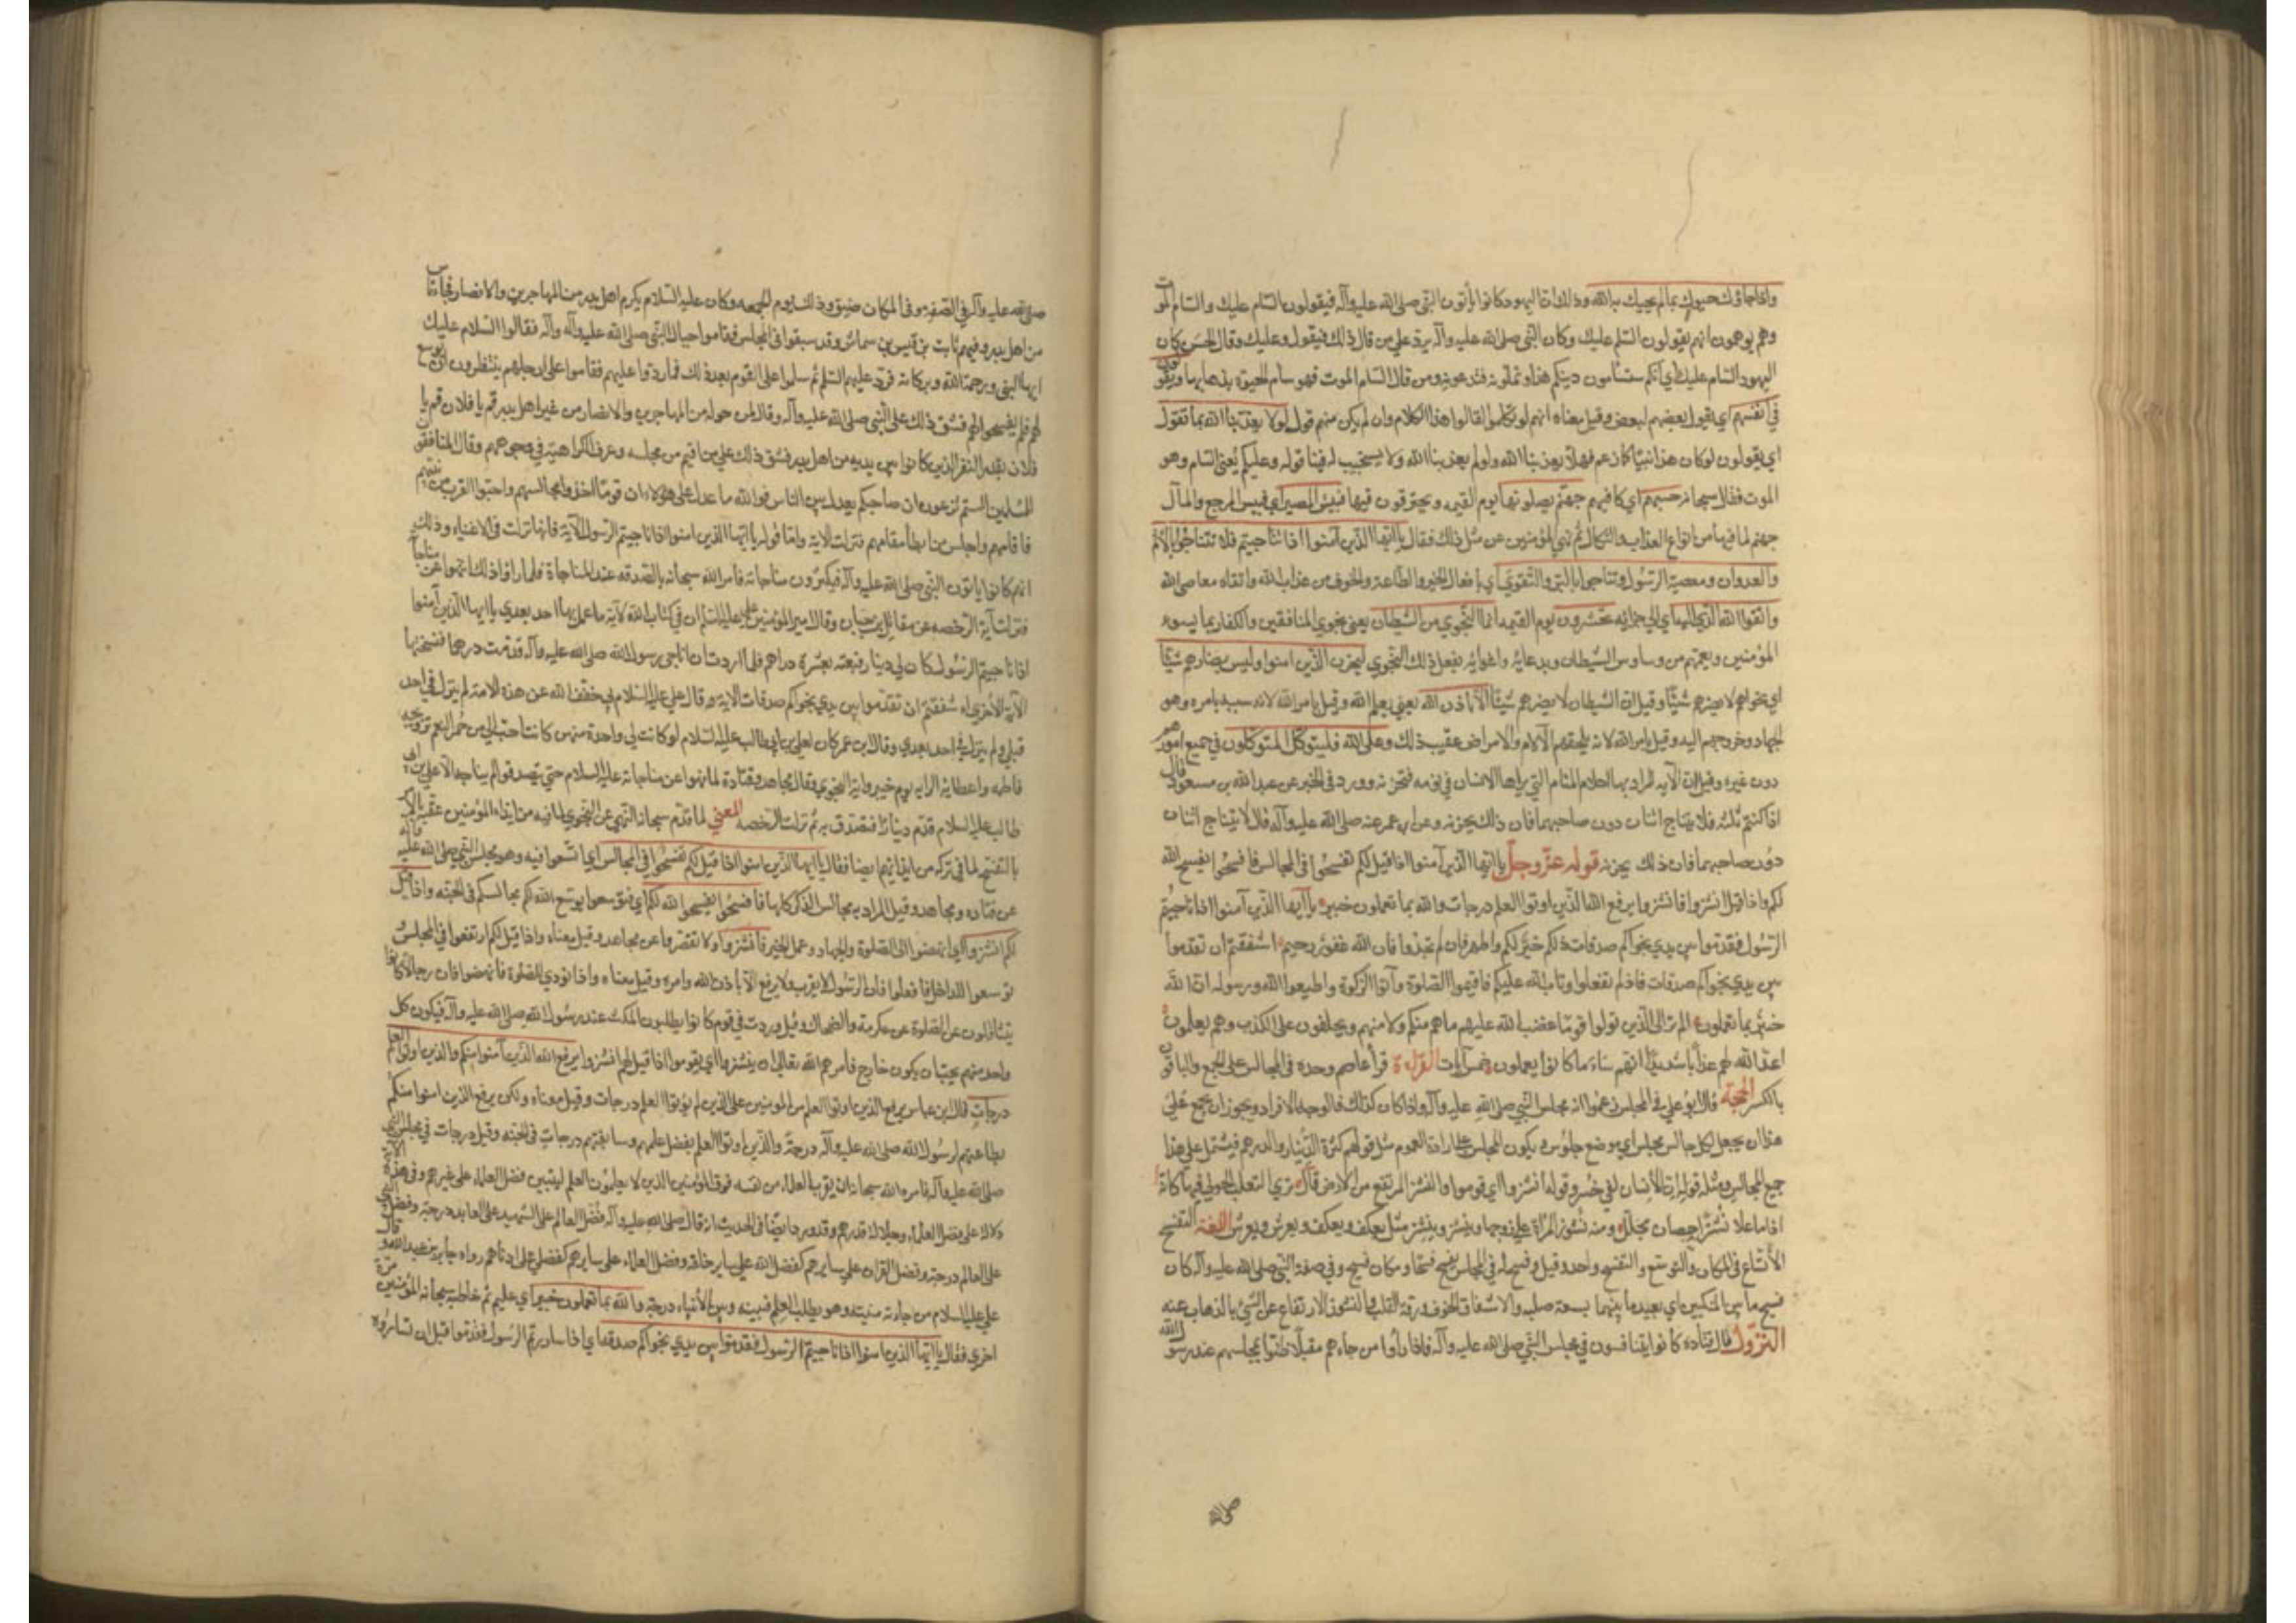 واذا جاؤك حيوك بما لم يحيك به الله وذلك ان اليهود كانوا يأتون النبي صلى الله عليه وآله فيقولون السام عليك والسام الموت
وهم يوهمون انهم يقولون السلم عليك وكان النبي صلى الله عليه وآله يرد على من قال ذلك فيقول وعليك وقال الحسن كان
اليهود السام عليك اي انكم ستسأمون دينكم هذا وتملونه فتدعونه ومن قال السام الموت فهو سام الحيوة بذهابها ويقولون
في انفسهم اي يقول بعضهم لبعض وقيل معناه انهم لو تكلموا لقالوا هذا الكلام وان لم يكن منهم قول لولا يعذبنا الله بما نقول
اي يقولون لو كان هذا نبيا كما زعم فهلا يعذبنا الله ولو لم يعذبنا الله ولا يستجيب له فينا قوله وعليكم يعني السام وهو
الموت فقال سبحانه حسبهم اي كافيهم جهنم يصلونها يوم القيمه ويحترقون فيها فبئس المصير اي فبئس المرجع والمآل
جهنم لما فيها من انواع العذاب والنكال ثم نهى المؤمنين عن مثل ذلك فقال يا ايها الذين آمنوا اذا تناجيتم فلا تتناجوا بالاثم
والعدوان ومعصية الرسول وتناجوا بالبر والتقوى اي بافعال الخير والطاعة والخوف من عذاب الله واتقاء معاصي الله
واتقوا الله الذي اليه اي الى جزائه تحشرون يوم القيمه انما النجوى من الشيطان يعني نجوى المنافقين والكفار بما يسوء
المؤمنين ويغمهم من وساوس الشيطان وبدعائه واغوائه يفعل ذلك النجوى ليحزن الذين امنوا وليس بضارهم شيئا
اي نجواهم لا يضرهم شيئا وقيل ان الشيطان لا يضرهم شيئا الا باذن الله يعني بعلم الله وقيل بامر الله لانه سببه بامره وهو
الجهاد وخروجهم اليه وقيل بامر الله لانه يلحقهم الآلام والامراض عقيب ذلك وعلى الله فليتوكل المتوكلون في جميع امورهم
دون غيره وقيل ان الآيه المراد بها احلام المنام التي يراها الانسان في نومه فتحزنه وورد في الخبر عن عبد الله بن مسعود قال
اذا كنتم ثلثه فلا يتناج اثنان دون صاحبهما فان ذلك يحزنه وعن ابن عمر عنه صلى الله عليه وآله قال لا يتناج اثنان
دون صاحبهما فان ذلك يحزنه قوله عز وجل يا ايها الذين آمنوا اذا قيل لكم تفسحوا في المجالس فافسحوا يفسح الله
لكم واذا قيل انشزوا فانشزوا يرفع الله الذين اوتوا العلم درجات والله بما تعملون خبير يا ايها الذين آمنوا اذا ناجيتم
الرسول فقدموا بين يدي نجواكم صدقات ذلكم خير لكم واطهر فان لم تجدوا فان الله غفور رحيم اشفقتم ان تقدموا
بين يدي نجواكم صدقات فاذ لم تفعلوا وتاب الله عليكم فاقيموا الصلوة وآتوا الزكوة واطيعوا الله ورسوله ان الله
خبير بما تعملون الم تر الى الذين تولوا قوما غضب الله عليهم ما هم منكم ولا منهم ويحلفون على الكذب وهم يعلمون
اعد الله لهم عذابا شديدا انهم ساء ما كانوا يعملون خمس آيات القراءة قرأ عاصم وحده في المجالس على الجمع والباقون
بالكسر الحجة قال ابو علي في المجلس زعموا انه مجلس النبي صلى الله عليه وآله واذا كان كذلك فالوجه الافراد ويجوز ان يجمع على
هذا ان يجعل لكل جالس مجلس اي موضع جلوس ويكون المجلس على ارادة العموم مثل قولهم كثر الدينار والدرهم فيشتمل على هذا
جميع المجالس ومثله قوله ان الانسان لفي خسر وقوله انشزوا اي قوموا والنشز المرتفع من الارض قال ترى الثعلب الحولي فيها كانه
اذا ما علا نشزا حصان مجلل ومنه نشوز المرأة على زوجها وينشز وينشز مثل يعكف ويعكف ويعرش ويعرش اللغة التفسح
الاتساع في المكان والتوسع والتفسح واحد وقيل وفسح له في المجلس يفسح فسحا ومكان فسيح وفي صفة النبي صلى الله عليه وآله كان
فسيح ما بين المنكبين اي بعيد ما بينهما بسعة صلبه والاشفاق الخوف ورقة القلب والنشوز الارتفاع عن الشيء بالذهاب عنه
النزول قال قتادة كانوا يتنافسون في مجلس النبي صلى الله عليه وآله فاذا رأوا من جاءهم مقبلا ظنوا بمجلسهم عند رسول الله
صلى الله عليه وآله في الصفه وفي المكان ضيق وذلك يوم الجمعه وكان عليه السلام يكرم اهل بدر من المهاجرين والانصار فجاء ناس
من اهل بدر وفيهم ثابت بن قيس بن شماس وقد سبقوا في المجلس فقاموا حيال النبي صلى الله عليه وآله فقالوا السلام عليك
ايها النبي ورحمة الله وبركاته فرد عليهم السلم ثم سلموا على القوم بعد ذلك فردوا عليهم فقاموا على ارجلهم ينتظرون ان يوسع
لهم فلم يفسحوا لهم فشق ذلك على النبي صلى الله عليه وآله وقال لمن حوله من المهاجرين والانصار من غير اهل بدر قم يا فلان قم يا
فلان بقدر النفر الذين كانوا بين يديه من اهل بدر فشق ذلك على من اقيم من مجلسه وعرف الكراهية في وجوههم وقال المنافقون
للمسلمين الستم تزعمون ان صاحبكم يعدل بين الناس فوالله ما عدل على هؤلاء ان قوما اخذوا مجالسهم واحبوا القرب من نبيهم
فاقامهم واجلس من ابطأ مقامهم فنزلت الاية واما قوله يا ايها الذين امنوا اذا ناجيتم الرسول الآية فانها نزلت في الاغنياء وذلك
انهم كانوا ياتون النبي صلى الله عليه وآله فيكثرون مناجاته فامر الله سبحانه بالصدقه عند المناجاة فلما رأوا ذلك انتهوا عن مناجاته
فنزلت آية الرخصه عن مقاتل بن حيان وقال امير المؤمنين علي عليه السلم ان في كتاب الله لآية ما عمل بها احد بعدي يا ايها الذين آمنوا
اذا ناجيتم الرسول كان لي دينار فبعته بعشرة دراهم فلما اردت ان اناجي رسول الله صلى الله عليه وآله قدمت درهما فنسختها
الآية الاخرى ءاشفقتم ان تقدموا بين يدي نجواكم صدقات الاية وقال علي عليه السلام بي خفف الله عن هذه الامة لم ينزل في احد
قبلي ولم ينزل في احد بعدي وقال ابن عمر كان لعلي بن ابي طالب عليه السلام لو كانت لي واحدة منهن كانت احب الي من حمر النعم تزويجه
فاطمه واعطائه الرايه يوم خيبر واية النجوى وقال مجاهد وقتادة لما نهوا عن مناجاته عليه السلام حتى يتصدقوا لم يناجه الا علي بن ابي
طالب عليه السلام قدم دينارا فتصدق به ثم نزلت الرخصه المعنى لما قدم سبحانه النهي عن النجوى لما فيه من ايذاء المؤمنين عقبه بالامر
بالتفسح لما في تركه من ايذائهم ايضا فقال يا ايها الذين امنوا اذا قيل لكم تفسحوا في المجالس اي اتسعوا فيه وهو مجلس النبي صلى الله عليه وآله
عن قتاده ومجاهد وقيل المراد به مجالس الذكر كلها فافسحوا يفسح الله لكم اي فتوسعوا يوسع الله لكم مجالسكم في الجنه واذا قيل
لكم انشزوا اي انهضوا الى الصلوة والجهاد وعمل الخير فانشزوا ولا تقصروا عن مجاهد وقيل معناه واذا قيل لكم ارتفعوا في المجلس
توسعوا للداخل فافعلوا فان الرسول لا يقرب ولا يرفع الا باذن الله وامره وقيل معناه واذا نودي للصلوة فانهضوا فان رجالا كانوا
يتثاقلون عن الصلوة عن عكرمة والضحاك وقيل وردت في قوم كانوا يطلبون المكث عند رسول الله صلى الله عليه وآله فيكون كل
واحد منهم يحب ان يكون خارج فامرهم الله تعالى ان ينشزوا اي يقوموا اذا قيل لهم انشزوا يرفع الله الذين آمنوا منكم والذين اوتوا العلم
درجات قال ابن عباس يرفع الذين اوتوا العلم من المؤمنين على الذين لم يؤتوا العلم درجات وقيل معناه ولكن يرفع الذين امنوا منكم
بطاعتهم لرسول الله صلى الله عليه وآله درجة والذين اوتوا العلم بفضل علمهم وسابقتهم درجات في الجنه وقيل درجات في مجلس النبي
صلى الله عليه وآله فامره الله سبحانه ان يقرب العلماء من نفسه فوق المؤمنين الذين لا يعلمون العلم ليتبين فضل العلماء على غيرهم وفي هذه الآية
دلالة على فضل العلماء وجلالة قدرهم وقد ورد ايضا في الحديث انه قال صلى الله عليه وآله فضل العالم على الشهيد درجة وفضل
على العالم درجة وفضل القران على سايرهم كفضل الله على ساير خلقه وفضل العلماء على سايرهم كفضلي على ادناهم رواه جابر بن عبد الله وقال
علي عليه السلام من جاءته منيته وهو يطلب العلم فبينه وبين الانبياء درجة والله بما تعملون خبير اي عليم ثم خاطب سبحانه المؤمنين مرة
اخرى فقال يا ايها الذين امنوا اذا ناجيتم الرسول فقدموا بين يدي نجواكم صدقة اي اذا ساررتم الرسول فقدموا قبل ان تساروه